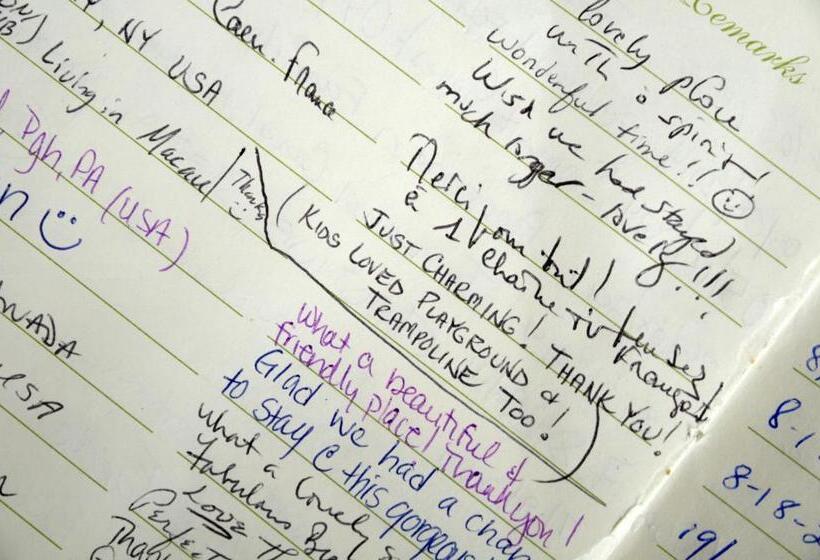 Remarks
lovely place
with a spirit!
wonderful time!!
Wish we had stayed
much longer - lovely!!!
, NY USA
Caen. France
Living in Macau
Thanks
Pgh, PA (USA)
Merci pour tout!
à 1 chaîne TV français
JUST CHARMING! THANK YOU!
(KIDS LOVED PLAYGROUND &
TRAMPOLINE TOO!)
what a beautiful &
friendly place! Thankyou!
Glad we had a chan
to stay @ this gorgeous
What a lovely s
fabulous Bre
LOVE th
Perfect
Thank
NADA
USA
8-1
8-18-